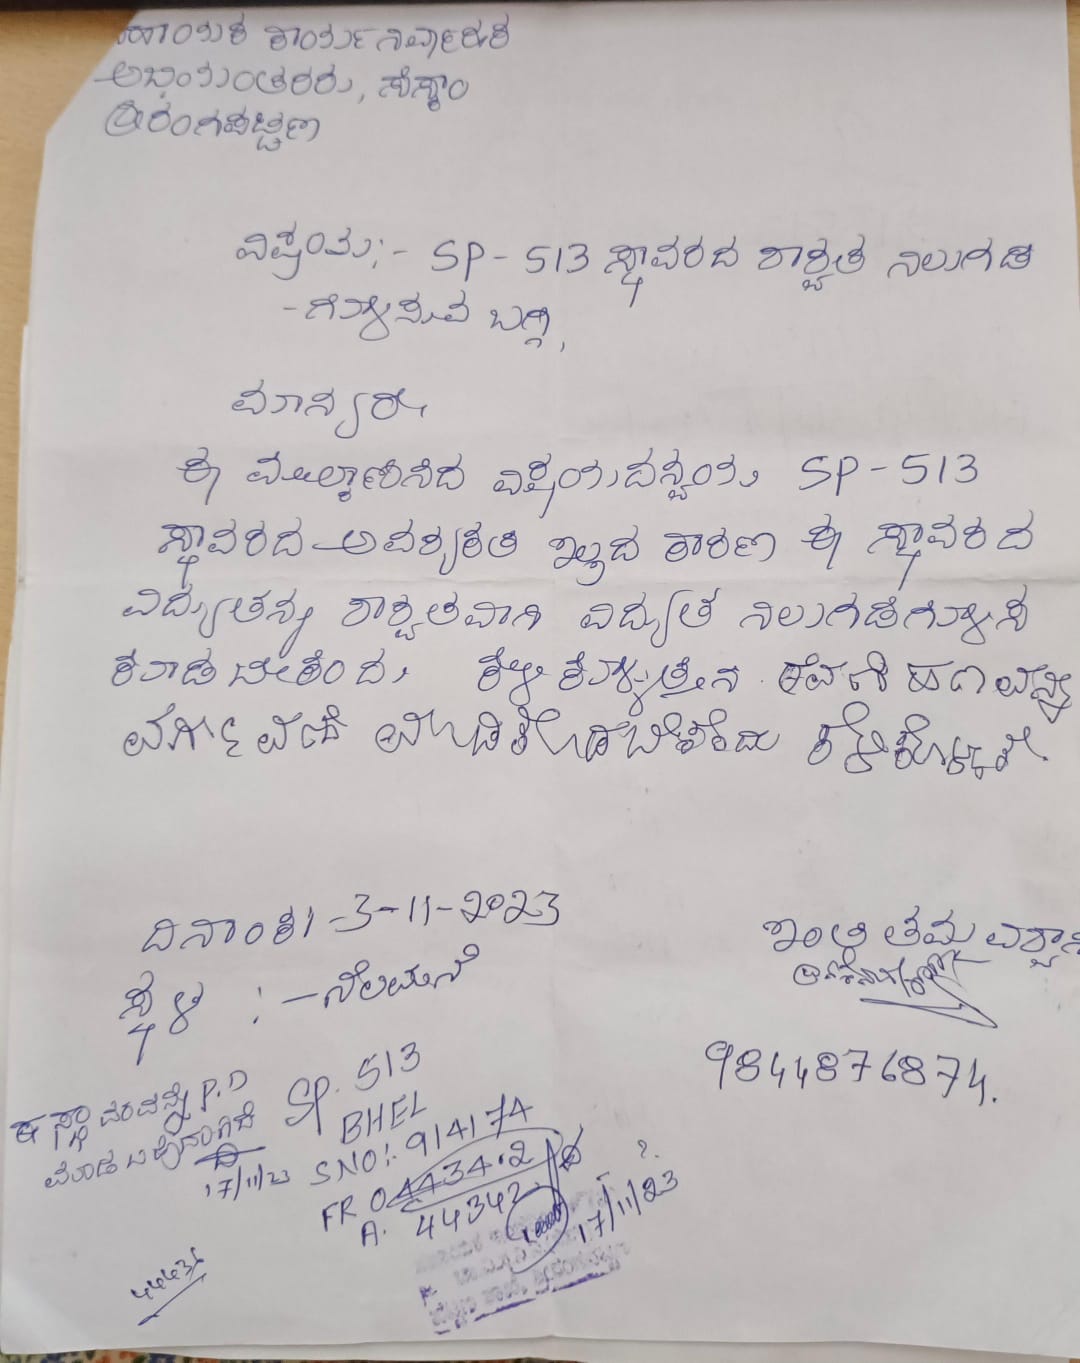 ಸಹಾಯಕ ಕಾರ್ಯನಿರ್ವಾಹಕ
ಅಭಿಯಂತರರು, ಸೆಸ್ಕಾಂ
ಶ್ರೀರಂಗಪಟ್ಟಣ
ವಿಷಯ:- SP-513 ಸ್ಥಾವರದ ಶಾಶ್ವತ ನಿಲುಗಡೆ
-ಗೊಳಿಸುವ ಬಗ್ಗೆ,
ಮಾನ್ಯರೇ,
ಈ ಮೇಲ್ಕಾಣಿಸಿದ ವಿಷಯದನ್ವಯ SP-513
ಸ್ಥಾವರದ ಅವಶ್ಯಕತೆ ಇಲ್ಲದ ಕಾರಣ ಈ ಸ್ಥಾವರದ
ವಿದ್ಯುತನ್ನು ಶಾಶ್ವತವಾಗಿ ವಿದ್ಯುತ ನಿಲುಗಡೆಗೊಳಿಸಿ
ಕೊಡಬೇಕೆಂದು ಕೇಳಿಕೊಳ್ಳುತ್ತೇನೆ. ಠೇವಣಿ ಹಣವನ್ನು
ವರ್ಗಾವಣೆ ಮಾಡಿಕೊಡಬೇಕೆಂದು ಕೇಳಿಕೊಳ್ಳುತ್ತೇನೆ.
ದಿನಾಂಕ:-3-11-2023
ಸ್ಥಳ :-ನೆಲಮನೆ
ಇಂತಿ ತಮ್ಮ ವಿಶ್ವಾಸಿ
9844876874.
ಈ ಸ್ಥಾವರವನ್ನು P.D
ಮಾಡಬಹುದಾಗಿದೆ
17/11/23
SP. 513
BHEL
SNO:- 914174
FR 04434.2
A. 44342
17/11/23